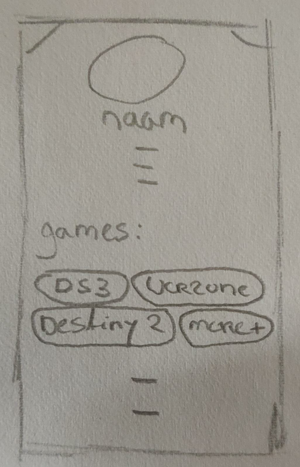 naam
games:
DS3 Warzone
Destiny 2 more+